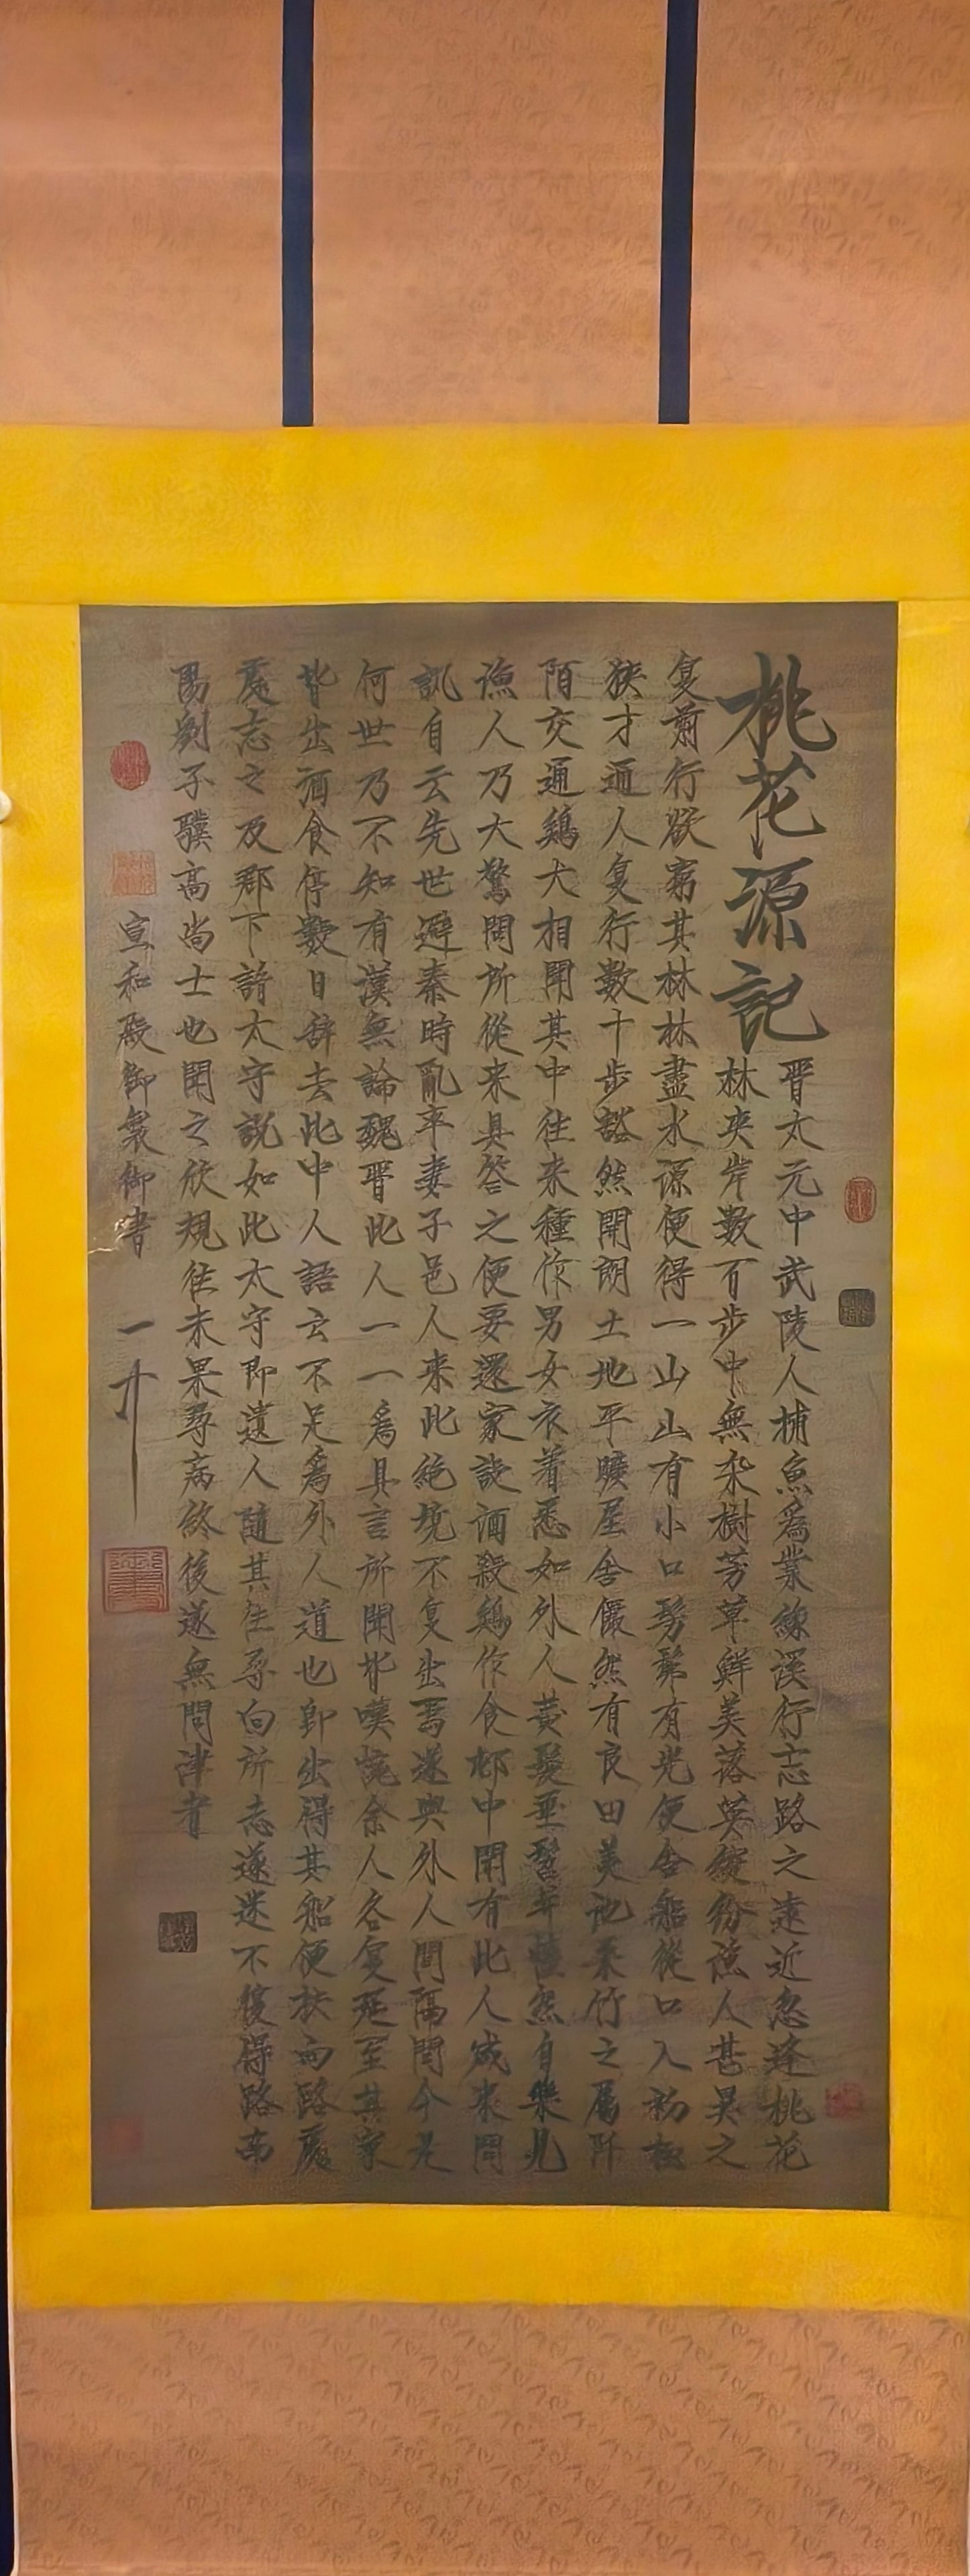 桃花源記
晋太元中武陵人捕魚爲業緣溪行忘路之遠近忽逢桃花
林夾岸數百步中無杂樹芳草鮮美落英繽紛漁人甚異之
复前行欲窮其林林盡水源便得一山山有小口髣髴有光便舍船從口入初極
狹才通人复行數十步豁然開朗土地平曠屋舍儼然有良田美池桑竹之屬阡
陌交通鷄犬相聞其中往来種作男女衣着悉如外人黄髮垂髫并怡然自樂見
漁人乃大驚問所從来具答之便要還家設酒殺鷄作食邨中聞有此人咸来問
訊自云先世避秦時亂率妻子邑人来此絶境不复出焉遂與外人間隔問今是
何世乃不知有漢無論魏晋此人一一爲具言所聞皆嘆惋余人各复延至其家
皆出酒食停數日辞去此中人語云不足爲外人道也即出得其船便扶向路處
處志之及郡下詣太守説如此太守即遣人隨其往尋向所志遂迷不復得路南
陽劉子驥高尚士也聞之欣規往未果尋病終後遂無問津者
宣和殿御製御書